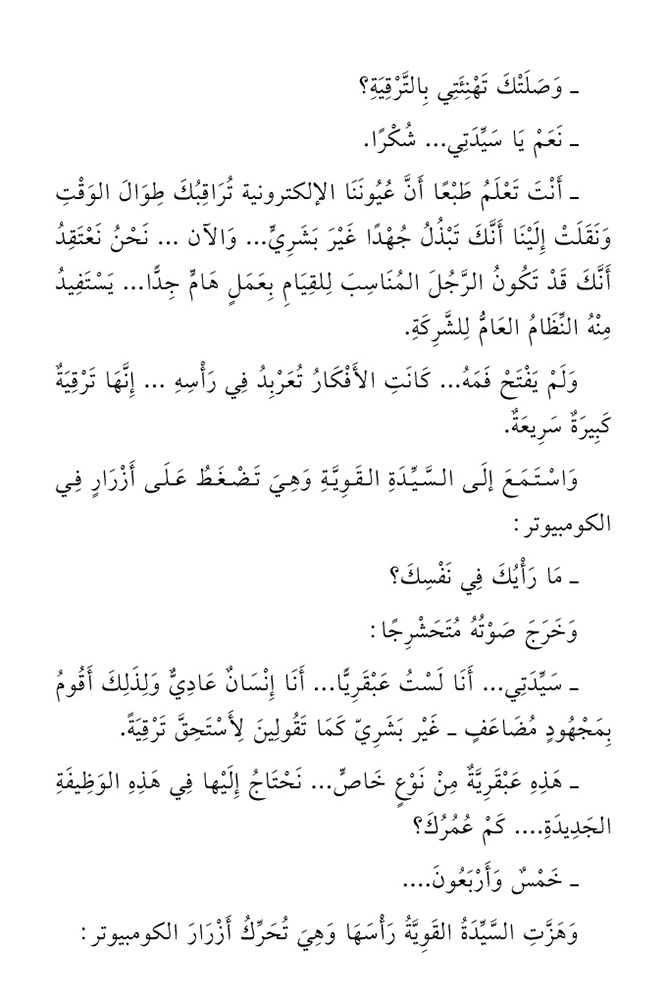 ـ وَصَلَتْكَ تَهْنِئَتِي بِالتَّرْقِيَةِ؟
ـ نَعَمْ يَا سَيِّدَتِي... شُكْرًا.
ـ أَنْتَ تَعْلَمُ طَبْعًا أَنَّ عُيُونَنَا الإلكترونية تُرَاقِبُكَ طِوَالَ الوَقْتِ
وَنَقَلَتْ إِلَيْنَا أَنَّكَ تَبْذُلُ جُهْدًا غَيْرَ بَشَرِيٍّ... وَالآن ... نَحْنُ نَعْتَقِدُ
أَنَّكَ قَدْ تَكُونُ الرَّجُلَ المُنَاسِبَ لِلقِيَامِ بِعَمَلٍ هَامٍّ جِدًّا... يَسْتَفِيدُ
مِنْهُ النِّظَامُ العَامُّ لِلشَّرِكَةِ.
وَلَمْ يَفْتَحْ فَمَهُ... كَانَتِ الأَفْكَارُ تُعَرْبِدُ فِي رَأْسِهِ ... إِنَّهَا تَرْقِيَةٌ
كَبِيرَةٌ سَرِيعَةٌ.
وَاسْتَمَعَ إلَى السَّيِّدَةِ القَوِيَّةِ وَهِيَ تَضْغَطُ عَلَى أَزْرَارٍ فِي
الكومبيوتر:
ـ مَا رَأْيُكَ فِي نَفْسِكَ؟
وَخَرَجَ صَوْتُهُ مُتَحَشْرِجًا:
ـ سَيِّدَتِي... أَنَا لَسْتُ عَبْقَرِيًّا... أَنَا إِنْسَانٌ عَادِيٌّ وَلِذَلِكَ أَقُومُ
بِمَجْهُودٍ مُضَاعَفٍ ـ غَيْر بَشَرِيّ كَمَا تَقُولِينَ لِأَسْتَحِقَّ تَرْقِيَةً.
ـ هَذِهِ عَبْقَرِيَّةٌ مِنْ نَوْعٍ خَاصٍّ... نَحْتَاجُ إِلَيْها فِي هَذِهِ الوَظِيفَةِ
الجَدِيدَةِ.... كَمْ عُمُرُكَ؟
ـ خَمْسٌ وَأَرْبَعُونَ....
وَهَزَّتِ السَّيِّدَةُ القَوِيَّةُ رَأْسَهَا وَهِيَ تُحَرِّكُ أَزْرَارَ الكومبيوتر: